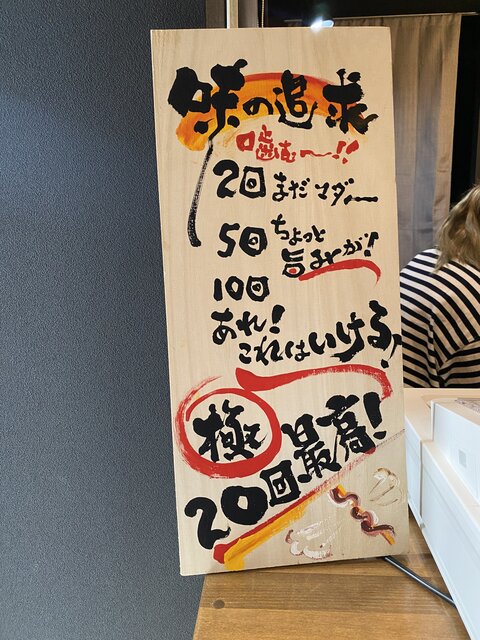 味の追求
噛む〜!!
2回 まだマダー
5回 ちょっと
旨みが!
100回
あれ!
これはいける!
極
200回最高!